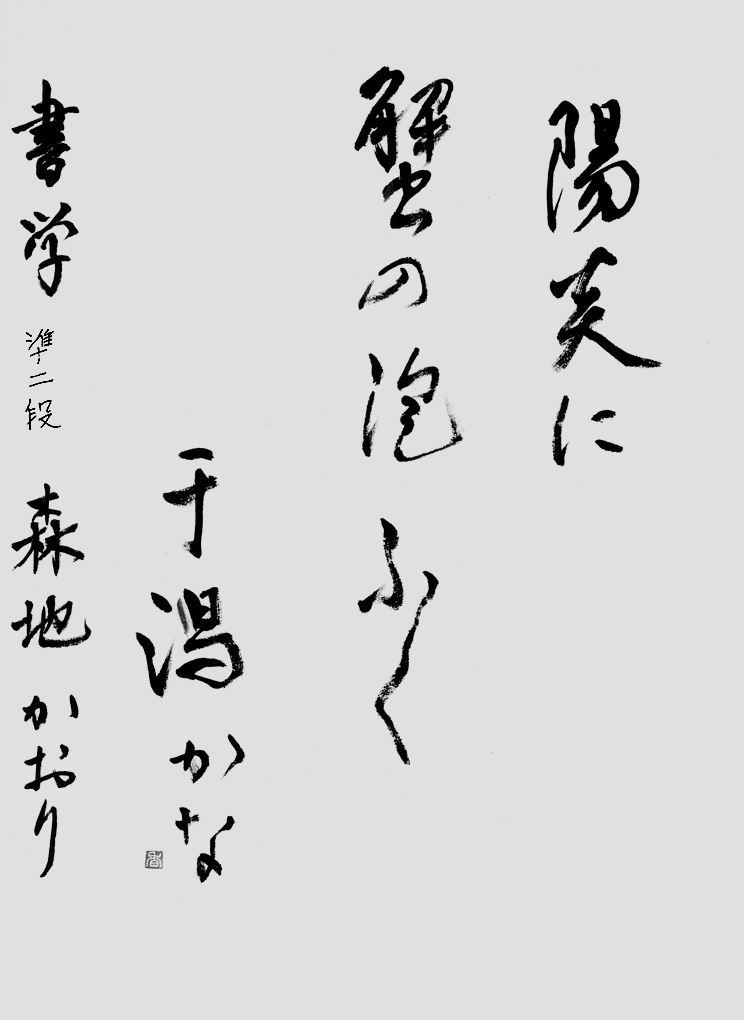 陽炎に
蟹の泡ふく
干潟かな
書学 準二段 森地かおり
香